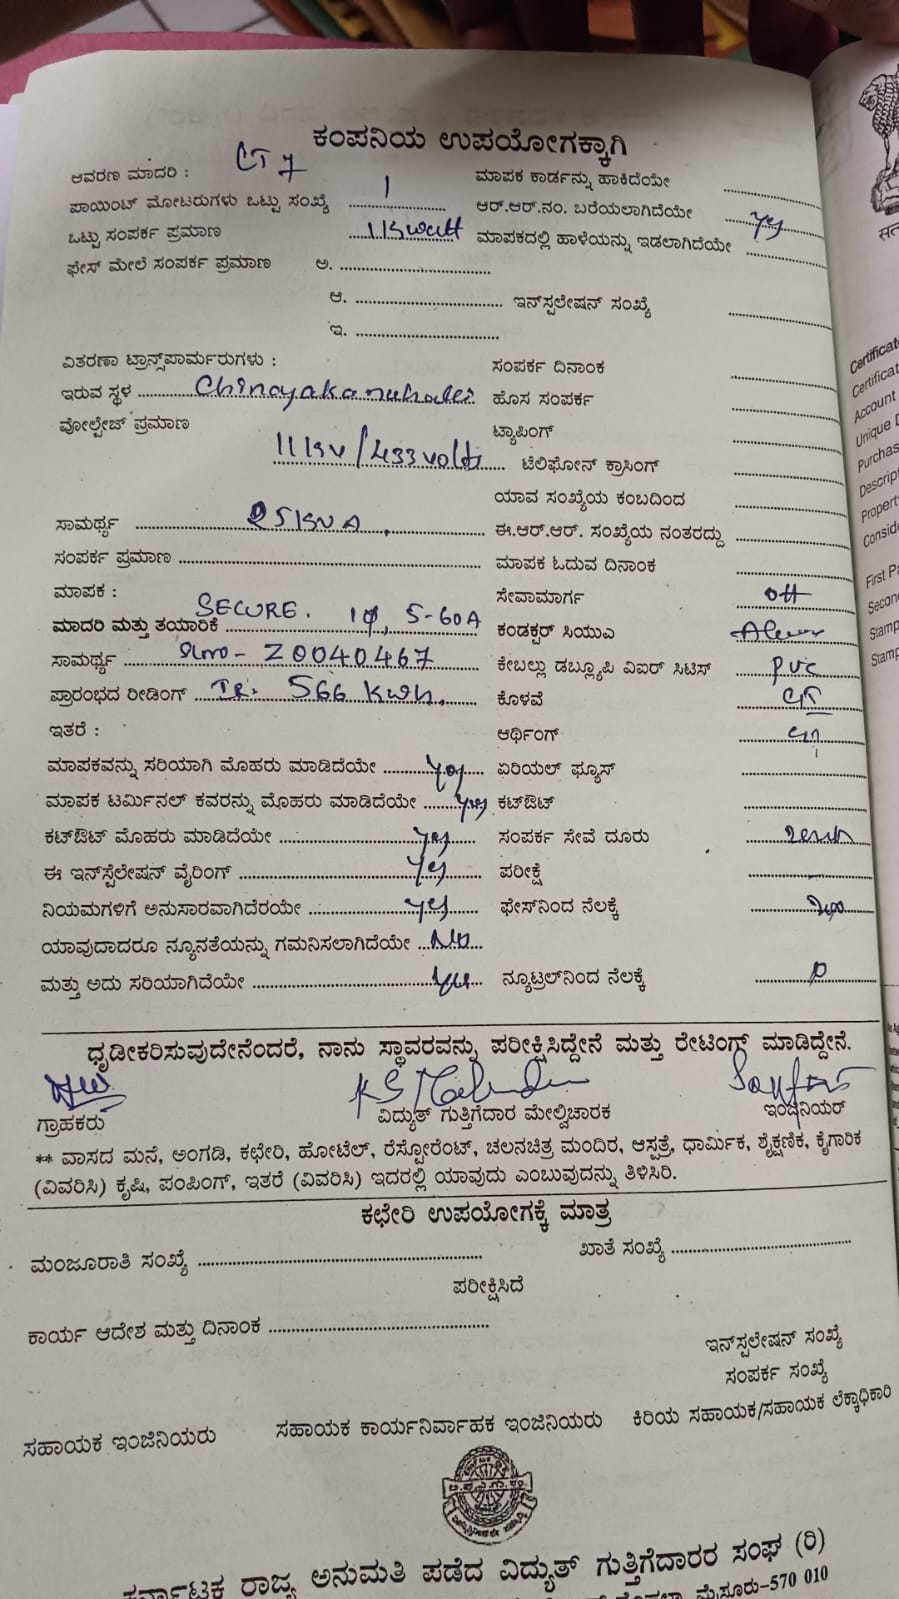 ಕಂಪನಿಯ ಉಪಯೋಗಕ್ಕಾಗಿ
ಆವರಣ ಮಾದರಿ : ಮಾಪಕ ಕಾರ್ಡನ್ನು ಹಾಕಿದೆಯೇ
ಪಾಯಿಂಟ್ ಮೋಟರುಗಳು ಒಟ್ಟು ಸಂಖ್ಯೆ 1 ಆರ್.ಆರ್.ನಂ. ಬರೆಯಲಾಗಿದೆಯೇ yes
ಒಟ್ಟು ಸಂಪರ್ಕ ಪ್ರಮಾಣ ಮಾಪಕದಲ್ಲಿ ಹಾಳೆಯನ್ನು ಇಡಲಾಗಿದೆಯೇ
ಫೇಸ್ ಮೇಲೆ ಸಂಪರ್ಕ ಪ್ರಮಾಣ ಅ.
ಆ. ಇನ್‌ಸ್ಪಲೇಷನ್ ಸಂಖ್ಯೆ
ಇ.
ವಿತರಣಾ ಟ್ರಾನ್ಸ್‌ಪಾರ್ಮರುಗಳು : ಸಂಪರ್ಕ ದಿನಾಂಕ
ಇರುವ ಸ್ಥಳ ಹೊಸ ಸಂಪರ್ಕ
ವೋಲ್ಟೇಜ್ ಪ್ರಮಾಣ ಟ್ಯಾಪಿಂಗ್
11kv/433volts ಟೆಲಿಫೋನ್ ಕ್ರಾಸಿಂಗ್
ಯಾವ ಸಂಖ್ಯೆಯ ಕಂಬದಿಂದ
ಸಾಮರ್ಥ್ಯ 25KVA ಈ.ಆರ್.ಆರ್. ಸಂಖ್ಯೆಯ ನಂತರದ್ದು
ಸಂಪರ್ಕ ಪ್ರಮಾಣ ಮಾಪಕ ಓದುವ ದಿನಾಂಕ
ಮಾಪಕ : ಸೇವಾಮಾರ್ಗ OH
ಮಾದರಿ ಮತ್ತು ತಯಾರಿಕೆ SECURE. 1φ, 5-60A ಕಂಡಕ್ಟರ್ ಸಿಯುಎ
ಸಾಮರ್ಥ್ಯ Slno- Z0040467 ಕೇಬಲ್ಲು ಡಬ್ಲ್ಯೂಪಿ ವಿಐರ್ ಸಿಟಿಸ್ PVC
ಪ್ರಾರಂಭದ ರೀಡಿಂಗ್ IR: 566 Kwh. ಕೊಳವೆ
ಇತರೆ : ಆರ್ಥಿಂಗ್
ಮಾಪಕವನ್ನು ಸರಿಯಾಗಿ ಮೊಹರು ಮಾಡಿದೆಯೇ yes ಏರಿಯಲ್ ಫ್ಯೂಸ್
ಮಾಪಕ ಟರ್ಮಿನಲ್ ಕವರನ್ನು ಮೊಹರು ಮಾಡಿದೆಯೇ yes ಕಟ್‌ಔಟ್
ಕಟ್‌ಔಟ್ ಮೊಹರು ಮಾಡಿದೆಯೇ yes ಸಂಪರ್ಕ ಸೇವೆ ದೂರು
ಈ ಇನ್‌ಸ್ಪಲೇಷನ್ ವೈರಿಂಗ್ yes ಪರೀಕ್ಷೆ
ನಿಯಮಗಳಿಗೆ ಅನುಸಾರವಾಗಿದೆರಯೇ yes ಫೇಸ್‌ನಿಂದ ನೆಲಕ್ಕೆ
ಯಾವುದಾದರೂ ನ್ಯೂನತೆಯನ್ನು ಗಮನಿಸಲಾಗಿದೆಯೇ No
ಮತ್ತು ಅದು ಸರಿಯಾಗಿದೆಯೇ yes ನ್ಯೂಟ್ರಲ್‌ನಿಂದ ನೆಲಕ್ಕೆ
ಧೃಡೀಕರಿಸುವುದೇನೆಂದರೆ, ನಾನು ಸ್ಥಾವರವನ್ನು ಪರೀಕ್ಷಿಸಿದ್ದೇನೆ ಮತ್ತು ರೇಟಿಂಗ್ ಮಾಡಿದ್ದೇನೆ.
ಗ್ರಾಹಕರು ವಿದ್ಯುತ್ ಗುತ್ತಿಗೆದಾರ ಮೇಲ್ವಿಚಾರಕ ಇಂಜಿನಿಯರ್
** ವಾಸದ ಮನೆ, ಅಂಗಡಿ, ಕಛೇರಿ, ಹೋಟೆಲ್, ರೆಸ್ಟೋರೆಂಟ್, ಚಲನಚಿತ್ರ ಮಂದಿರ, ಆಸ್ಪತ್ರೆ, ಧಾರ್ಮಿಕ, ಶೈಕ್ಷಣಿಕ, ಕೈಗಾರಿಕ
(ವಿವರಿಸಿ) ಕೃಷಿ, ಪಂಪಿಂಗ್, ಇತರೆ (ವಿವರಿಸಿ) ಇದರಲ್ಲಿ ಯಾವುದು ಎಂಬುವುದನ್ನು ತಿಳಿಸಿರಿ.
ಕಛೇರಿ ಉಪಯೋಗಕ್ಕೆ ಮಾತ್ರ
ಮಂಜೂರಾತಿ ಸಂಖ್ಯೆ ಖಾತೆ ಸಂಖ್ಯೆ
ಪರೀಕ್ಷಿಸಿದೆ
ಕಾರ್ಯ ಆದೇಶ ಮತ್ತು ದಿನಾಂಕ
ಇನ್‌ಸ್ಪಲೇಷನ್ ಸಂಖ್ಯೆ
ಸಂಪರ್ಕ ಸಂಖ್ಯೆ
ಸಹಾಯಕ ಇಂಜಿನಿಯರು ಸಹಾಯಕ ಕಾರ್ಯನಿರ್ವಾಹಕ ಇಂಜಿನಿಯರು ಕಿರಿಯ ಸಹಾಯಕ/ಸಹಾಯಕ ಲೆಕ್ಕಾಧಿಕಾರಿ
ಕರ್ನಾಟಕ ರಾಜ್ಯ ಅನುಮತಿ ಪಡೆದ ವಿದ್ಯುತ್ ಗುತ್ತಿಗೆದಾರರ ಸಂಘ (ರಿ)
ಮೈಸೂರು-570 010
Account
First